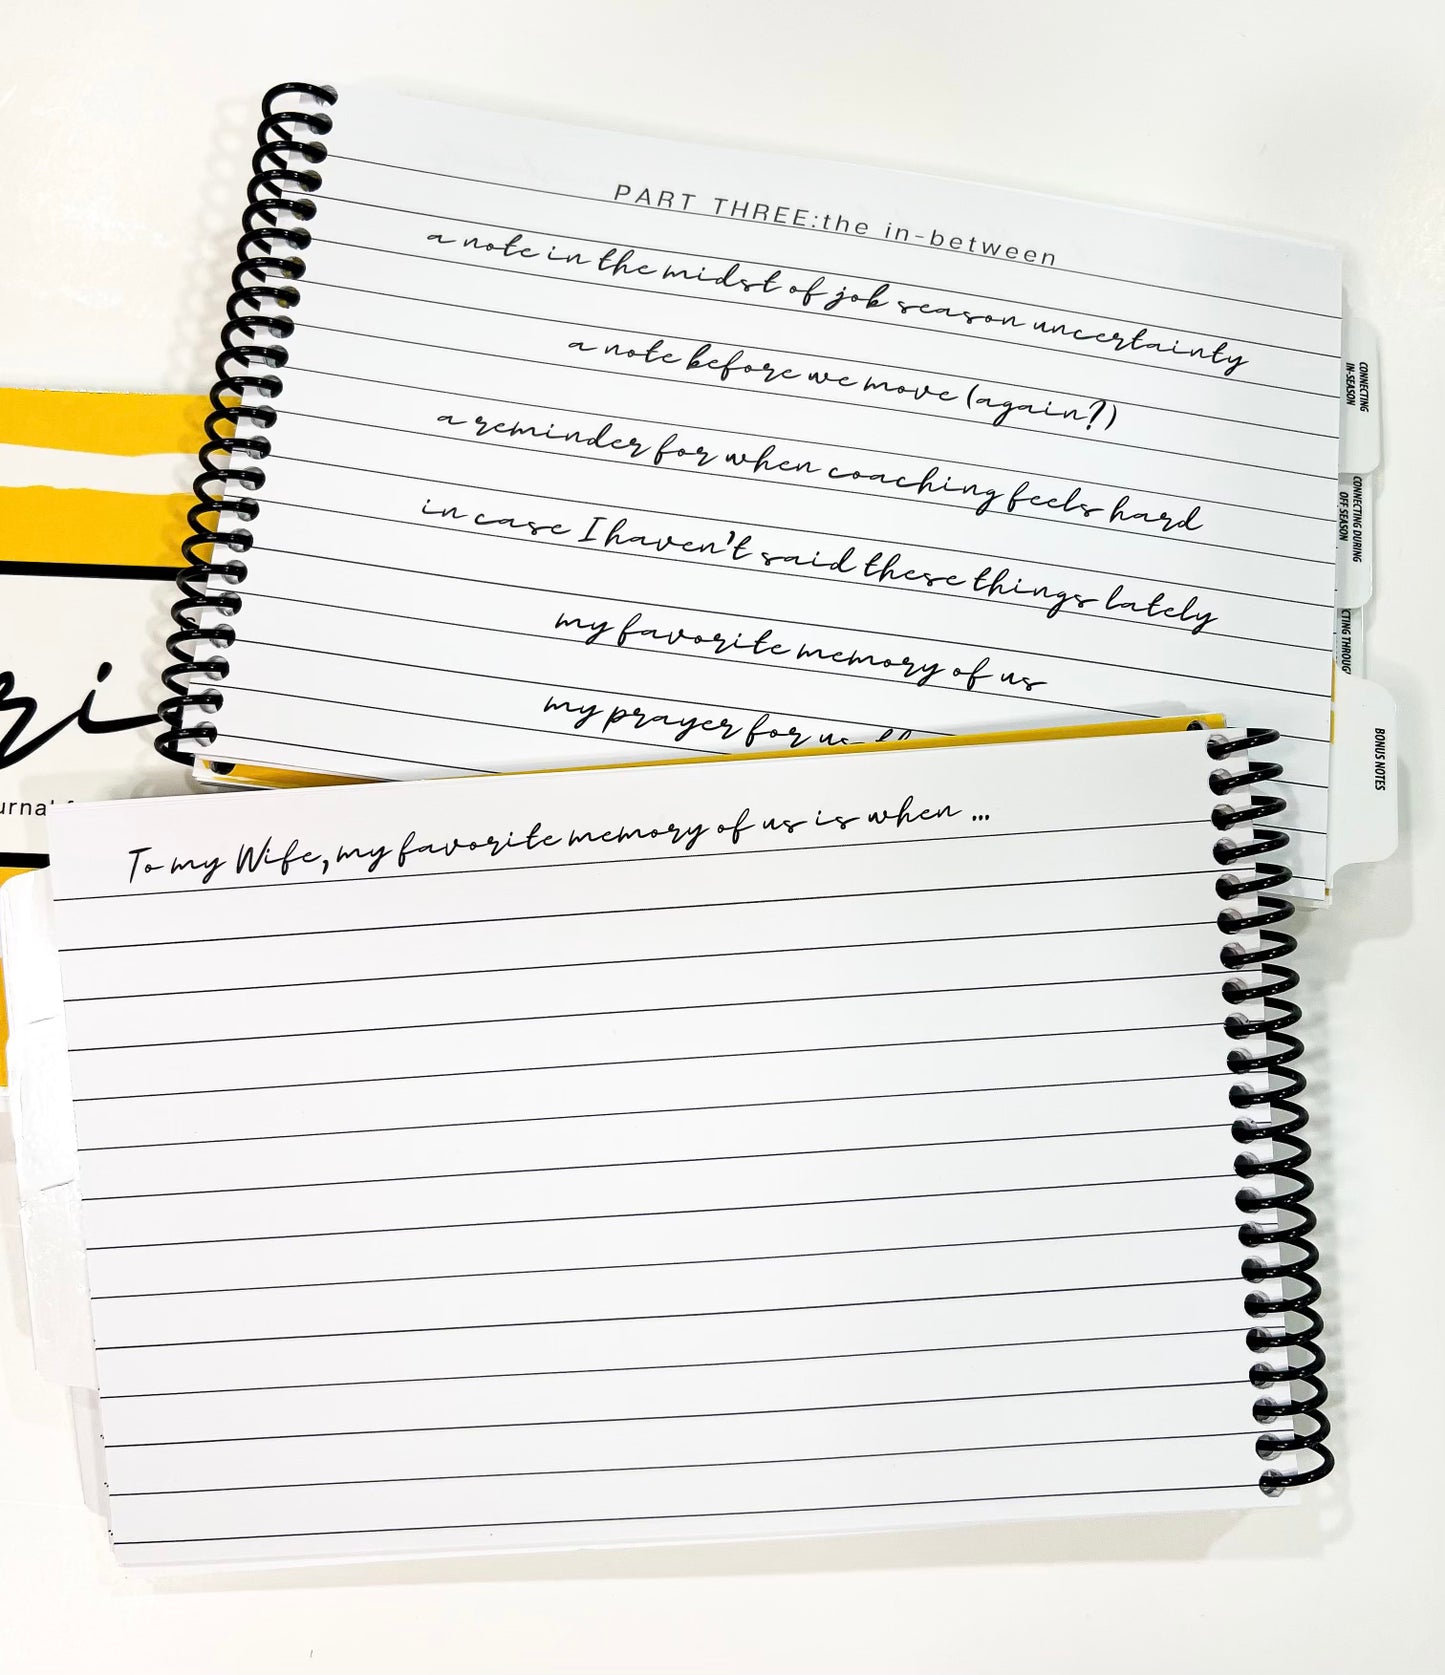 PART THREE:the in-between
a note in the midst of job season uncertainty
a note before we move (again?)
a reminder for when coaching feels hard
in case I haven't said these things lately
my favorite memory of us
my prayer for us
CONNECTING
IN-SEASON
CONNECTING DURING
OFF SEASON
BONUS NOTES
To my Wife, my favorite memory of us is when ...